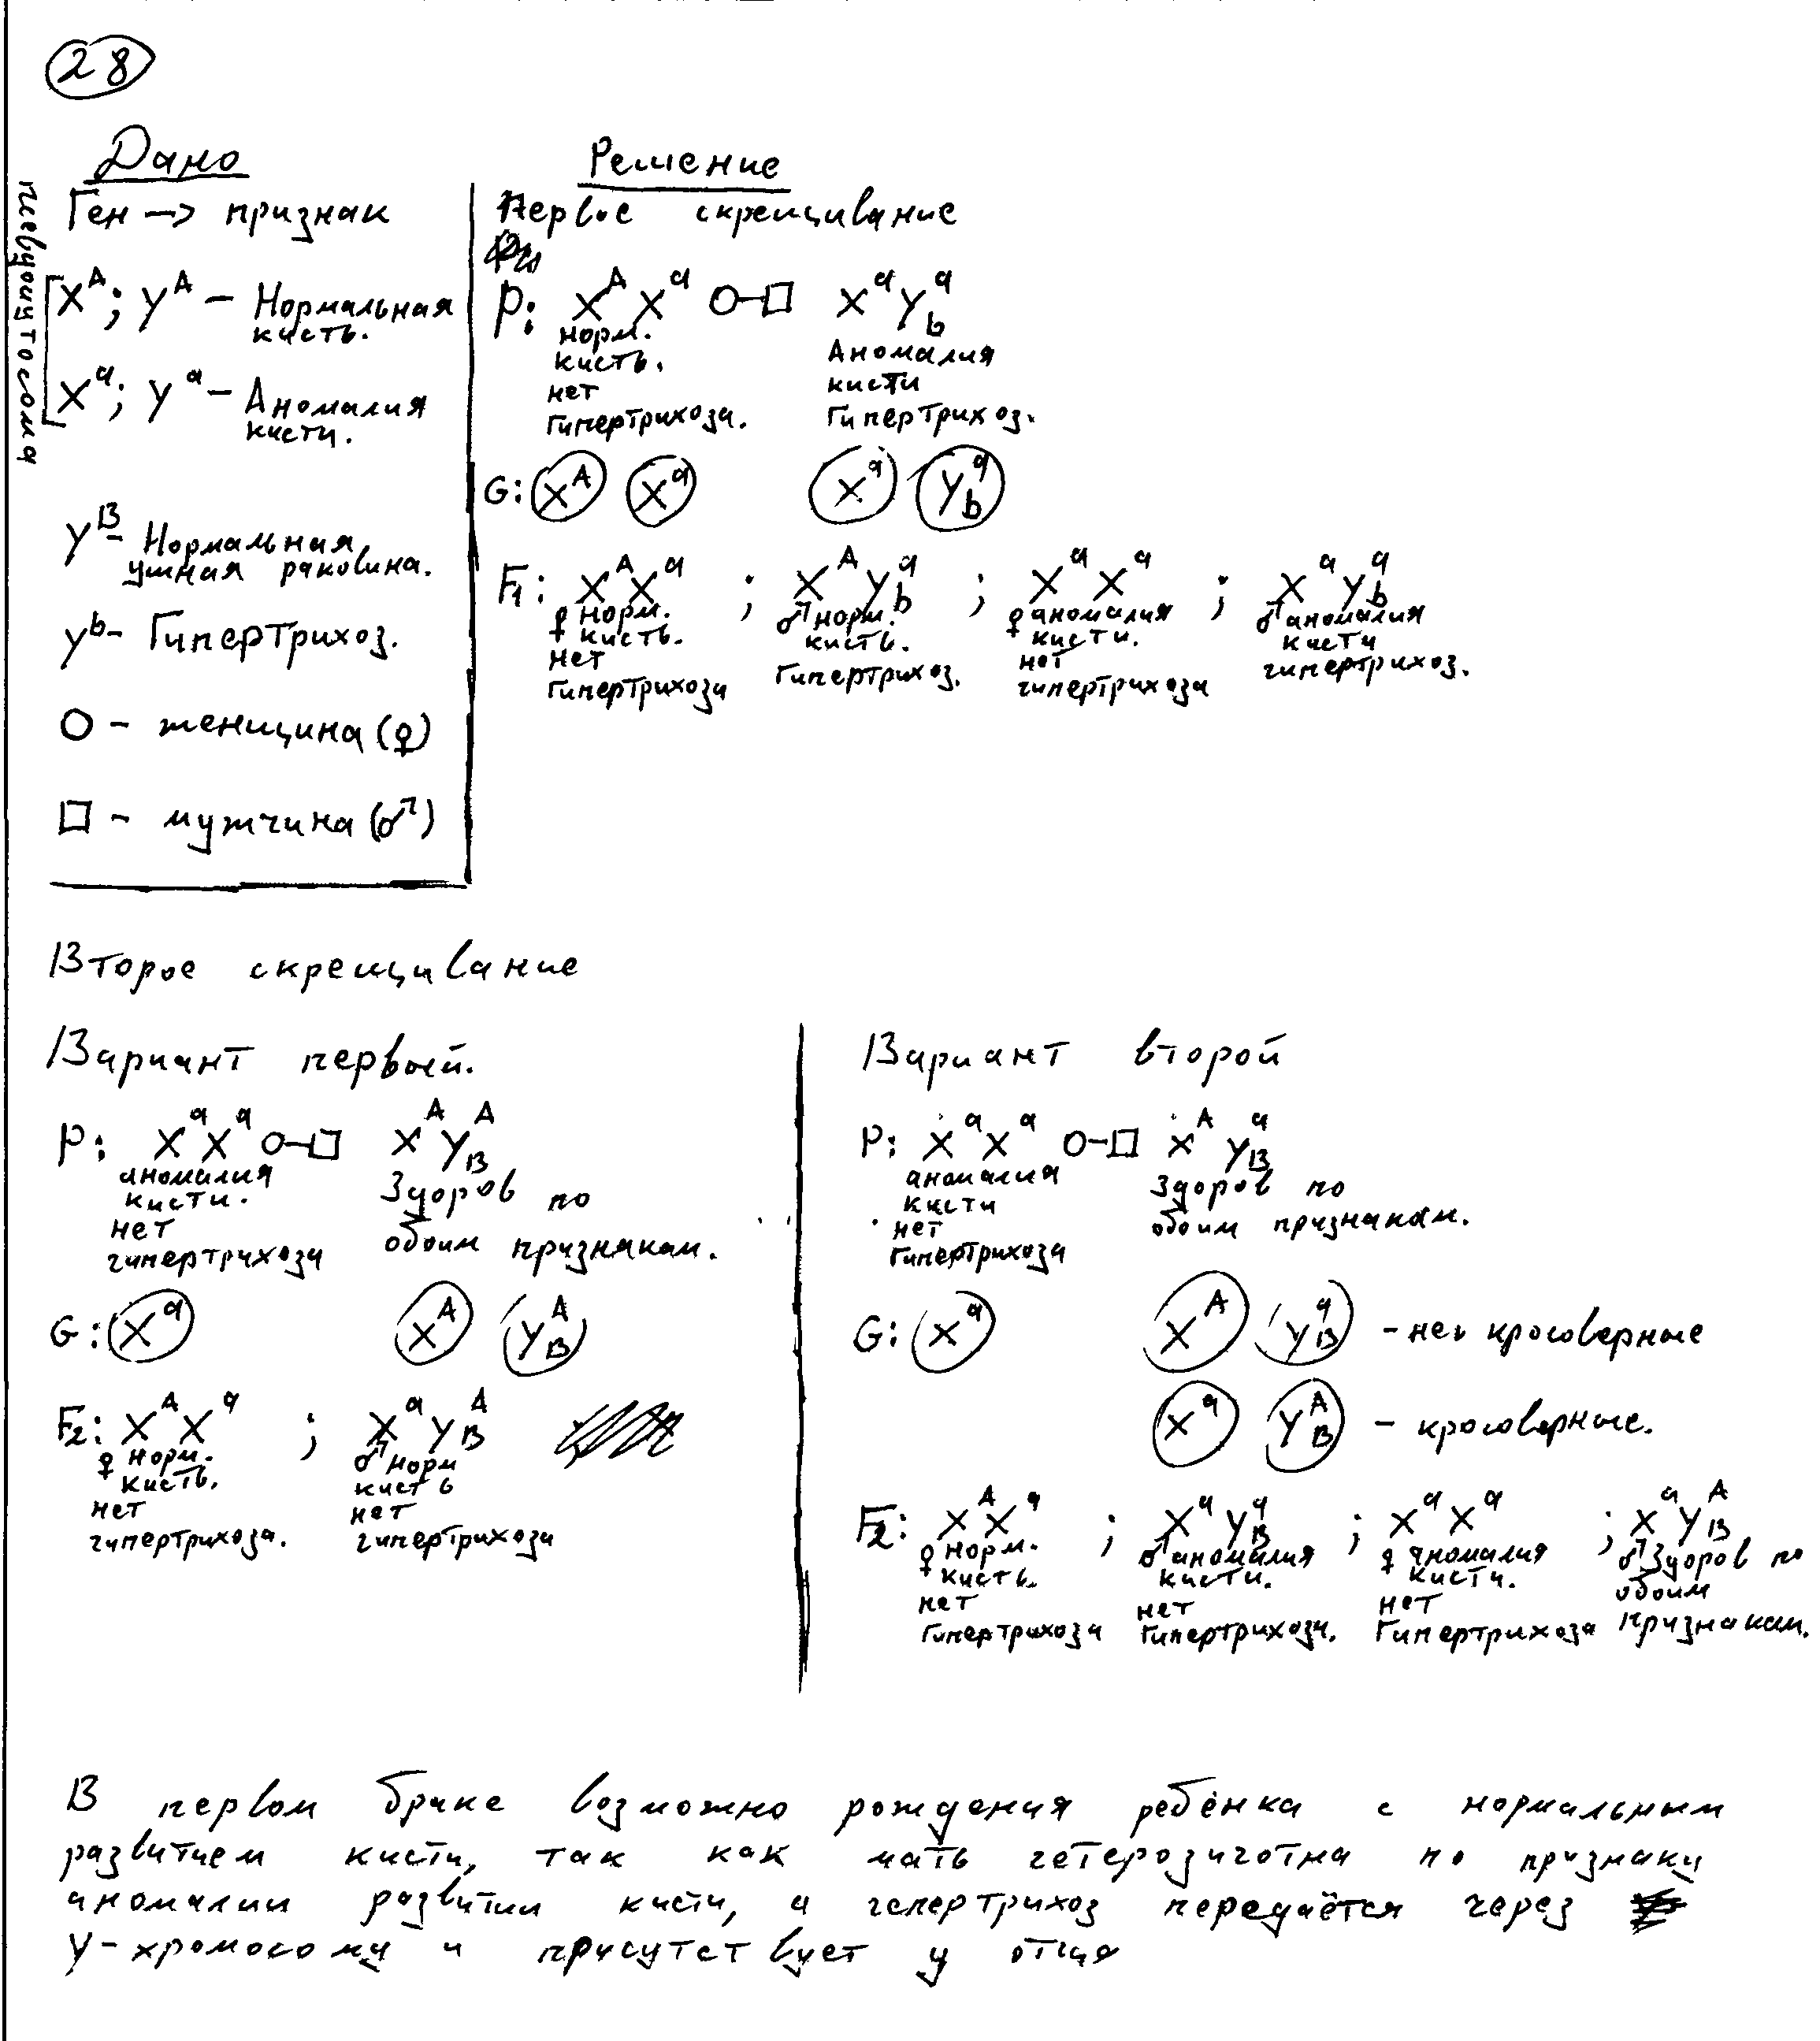 28
Дано
Ген -> признак
псевдоаутосома
X^A; y^A - Нормальная
кисть.
X^a; y^a - Аномалия
кисти.
y^B - Нормальная
ушная раковина.
y^b - Гипертрихоз.
O - женщина (♀)
□ - мужчина (♂)
Решение
Первое скрещивание
P: X^A X^a O-□ X^a Y_b^a
норм. кисть. нет гипертрихоза. Аномалия кисти Гипертрихоз.
G: X^A X^a X^a Y_b^a
F1: X^A X^a ; X^A Y_b^a ; X^a X^a ; X^a Y_b^a
♀ норм. кисть. нет гипертрихоза ♂ норм. кисть. Гипертрихоз. ♀ аномалия кисти. нет гипертрихоза ♂ аномалия кисти гипертрихоз.
Второе скрещивание
Вариант первый.
P: X^a X^a O-□ X^A Y_B^A
аномалия кисти. нет гипертрихоза Здоров по обоим признакам.
G: X^a X^A Y_B^A
F2: X^A X^a ; X^a Y_B^A
♀ норм. кисть. нет гипертрихоза. ♂ норм кисть нет гипертрихоза
Вариант второй
P: X^a X^a O-□ X^A Y_B^a
аномалия кисти нет Гипертрихоза Здоров по обоим признакам.
G: X^a X^A Y_B^a - кросоверные
X^a Y_B^A - кросоверные.
F2: X^A X^a ; X^a Y_B^a ; X^a X^a ; X^a Y_B^A
♀ норм. кисть. нет Гипертрихоза ♂ аномалия кисти. нет Гипертрихоза. ♀ аномалия кисти. нет Гипертрихоза ♂ Здоров по обоим признакам.
В первом браке возможно рождения ребёнка с нормальным
развитием кисти, так как мать гетерозиготна по признаку
аномалии развитии кисти, а гепертрихоз передаётся через
У-хромосому и присутствует у отца